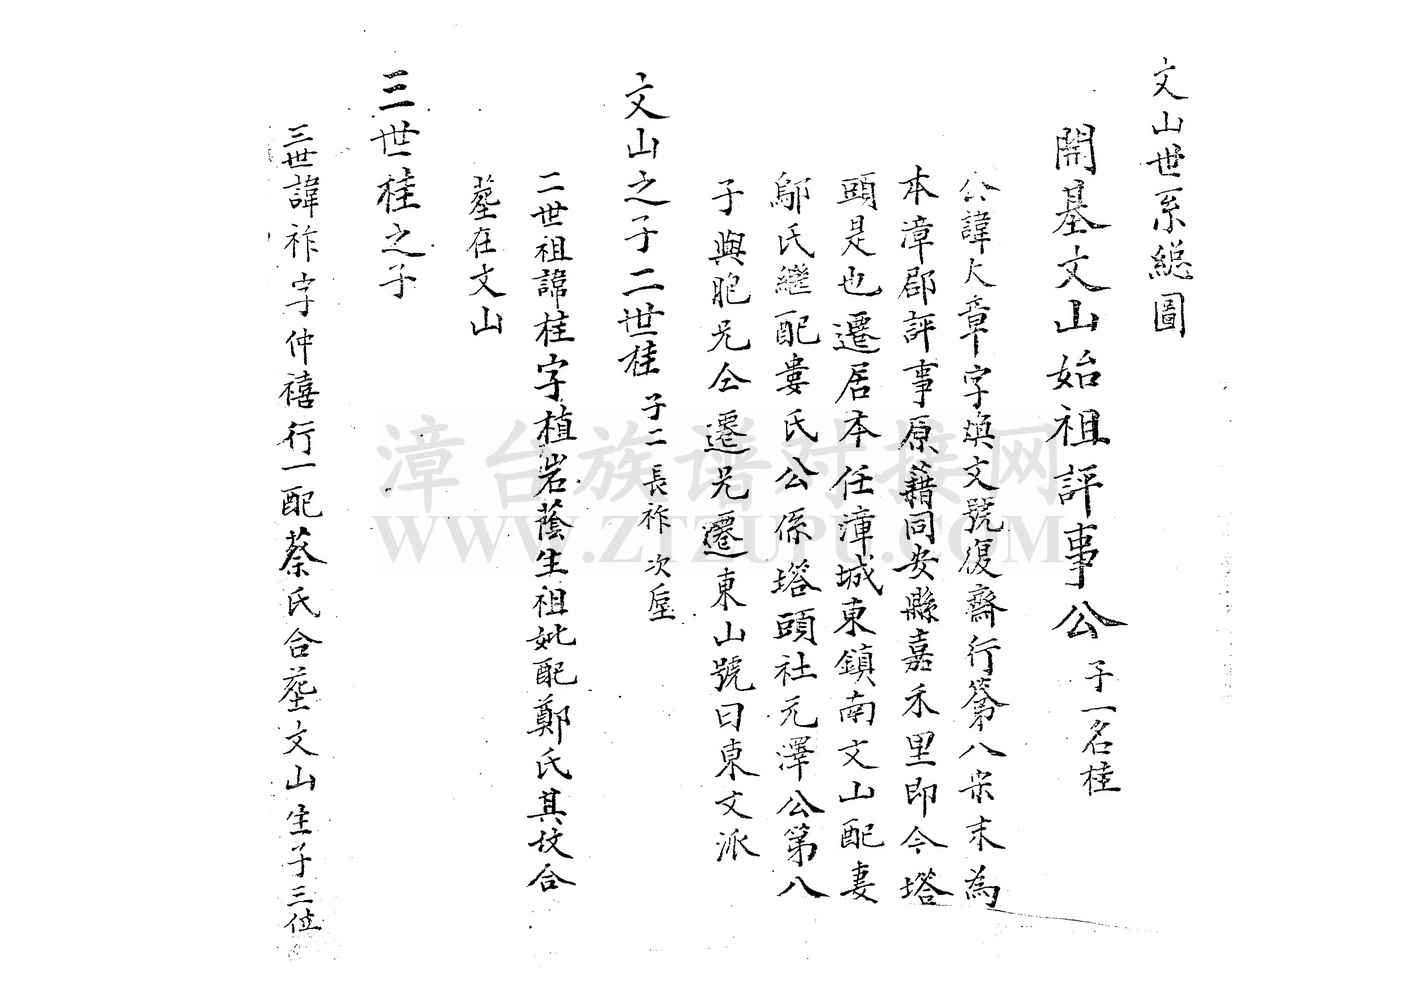 文山世系総圖
開基文山始祖評事公 子一名桂
公諱大章字煥文號復齋行第八宋末為
本漳郡評事原籍同安縣嘉禾里即今塔
頭是也遷居本任漳城東鎮南文山配妻
鄔氏繼配婁氏公係塔頭社元澤公第八
子與胞兄仝遷兄遷東山號曰東文派
文山之子二世桂 子二 長祚 次垕
二世祖諱桂字植岩蔭生祖妣配鄭氏其坟合
塟在文山
三世桂之子
三世諱祚字仲禧行一配蔡氏合塟文山生子三位
漳台族谱对接网
WWW.ZTZUPU.COM